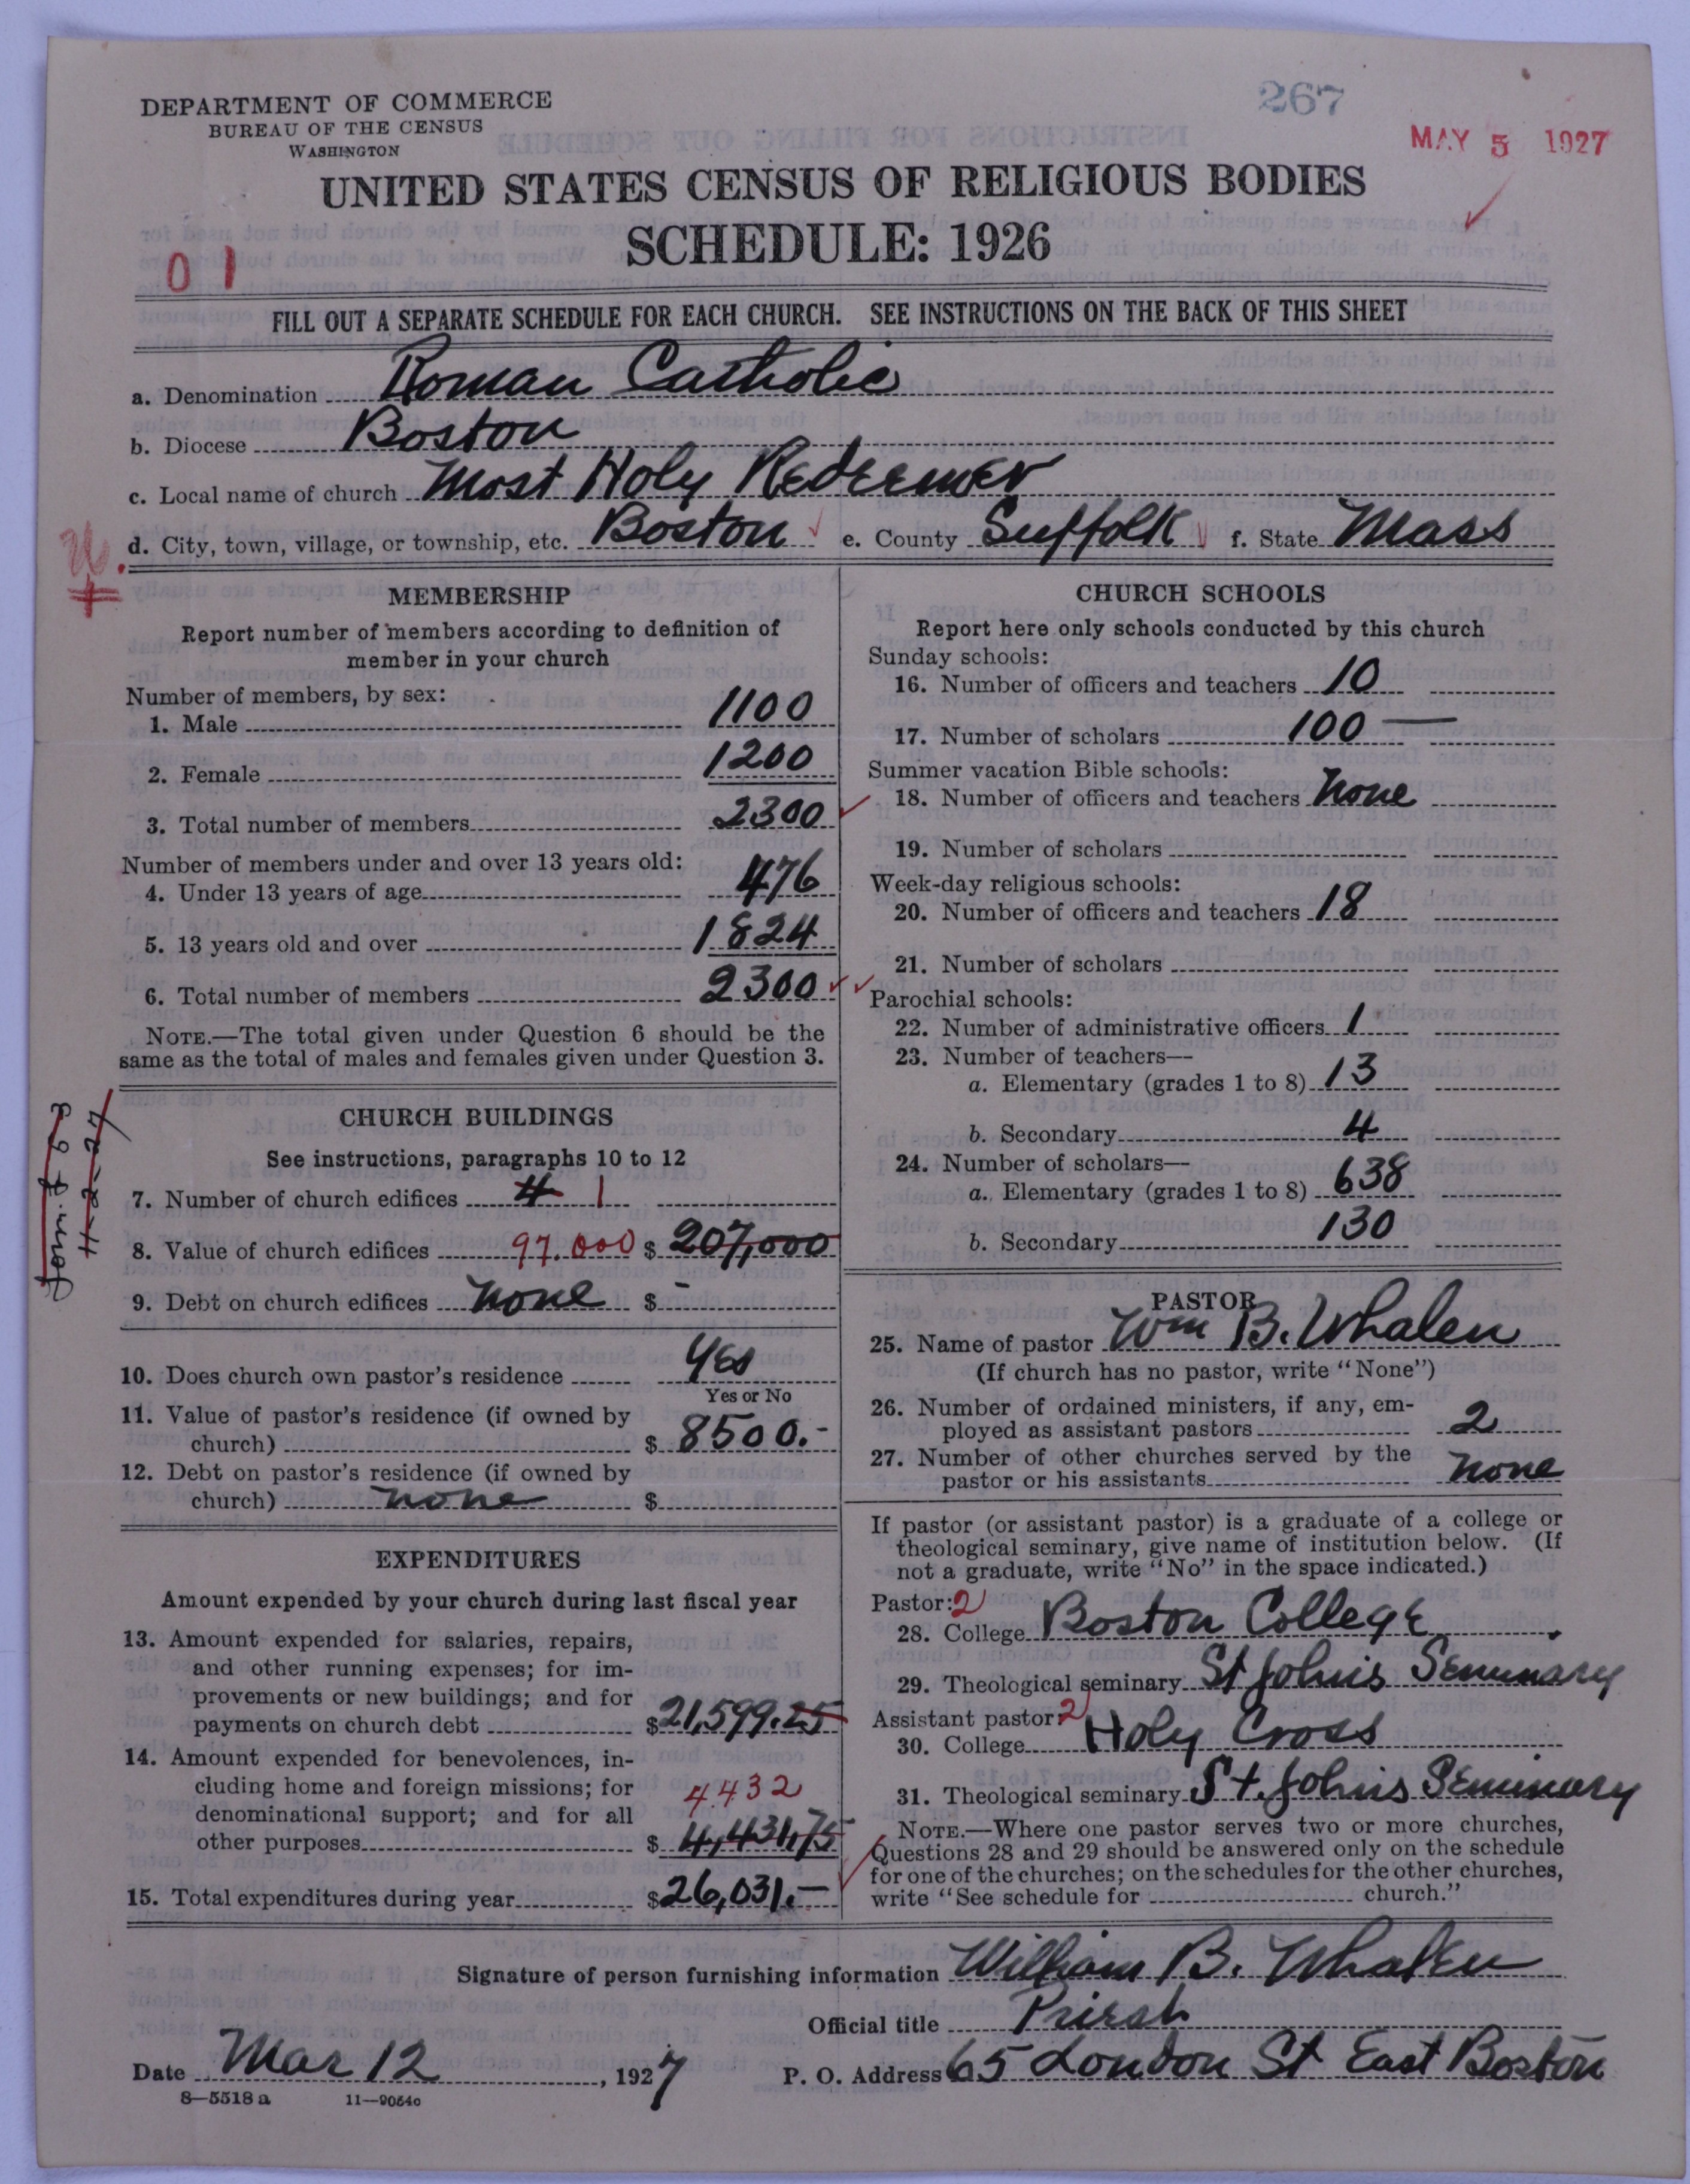 267
DEPARTMENT OF COMMERCE
BUREAU OF THE CENSUS
WASHINGTON
MAY 5 1927
UNITED STATES CENSUS OF RELIGIOUS BODIES
SCHEDULE: 1926
01
FILL OUT A SEPARATE SCHEDULE FOR EACH CHURCH. SEE INSTRUCTIONS ON THE BACK OF THIS SHEET
a. Denomination Roman Catholic
b. Diocese Boston
c. Local name of church Most Holy Redeemer
d. City, town, village, or township, etc. Boston e. County Suffolk f. State Mass
MEMBERSHIP
Report number of members according to definition of
member in your church
Number of members, by sex:
1. Male 1100
2. Female 1200
3. Total number of members 2300
Number of members under and over 13 years old:
4. Under 13 years of age 476
5. 13 years old and over 1824
6. Total number of members 2300
NOTE.—The total given under Question 6 should be the
same as the total of males and females given under Question 3.
CHURCH BUILDINGS
See instructions, paragraphs 10 to 12
7. Number of church edifices 4 1
8. Value of church edifices 97.000 $ 207,000
9. Debt on church edifices none $ -
10. Does church own pastor's residence Yes
Yes or No
11. Value of pastor's residence (if owned by
church) $ 8500.-
12. Debt on pastor's residence (if owned by
church) none $
EXPENDITURES
Amount expended by your church during last fiscal year
13. Amount expended for salaries, repairs,
and other running expenses; for im-
provements or new buildings; and for
payments on church debt $21,599.25
14. Amount expended for benevolences, in-
cluding home and foreign missions; for
4432
denominational support; and for all
other purposes $ 4,431,75
15. Total expenditures during year $26,031.—
CHURCH SCHOOLS
Report here only schools conducted by this church
Sunday schools:
16. Number of officers and teachers 10
17. Number of scholars 100 —
Summer vacation Bible schools:
18. Number of officers and teachers None
19. Number of scholars
Week-day religious schools:
20. Number of officers and teachers 18
21. Number of scholars
Parochial schools:
22. Number of administrative officers 1
23. Number of teachers—
a. Elementary (grades 1 to 8) 13
b. Secondary 4
24. Number of scholars—
a. Elementary (grades 1 to 8) 638
b. Secondary 130
PASTOR
25. Name of pastor Wm B. Whalen
(If church has no pastor, write "None")
26. Number of ordained ministers, if any, em-
ployed as assistant pastors 2
27. Number of other churches served by the
pastor or his assistants none
If pastor (or assistant pastor) is a graduate of a college or
theological seminary, give name of institution below. (If
not a graduate, write "No" in the space indicated.)
Pastor: 2
28. College Boston College
29. Theological seminary St Johns Seminary
Assistant pastor: 2
30. College Holy Cross
31. Theological seminary St. Johns Seminary
NOTE.—Where one pastor serves two or more churches,
Questions 28 and 29 should be answered only on the schedule
for one of the churches; on the schedules for the other churches,
write "See schedule for church."
Signature of person furnishing information William B. Whalen
Official title Priest
Date Mar 12, 1927 P. O. Address 65 London St East Boston
8—5518 a 11—9064c